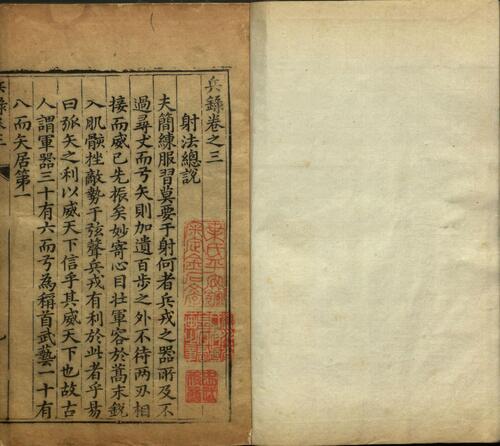 兵錄卷之三
射法總說
夫簡練服習莫要于射何者兵戎之器所及不
過尋丈而弓矢則加遺百步之外不待兩刃相
接而威已先振矣妙寄心目壯軍容於蒿末銳
入肌骸挫敵勢于弦聲兵戎有利於此者乎易
曰弧矢之利以威天下信乎其威天下也故古
人謂軍器三十有六而弓為稱首武藝一十有
八而矢居第一
兵錄卷三